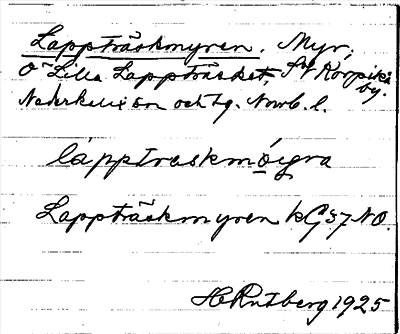 Lappträskmyren. Myr,
O Lilla Lappträsket, SV Korpiki-
by.
Nederkalix sn och tg. Norrb. l.
lapptreskmøyra
Lappträskmyren kG 37 NO.
H Rutberg 1925